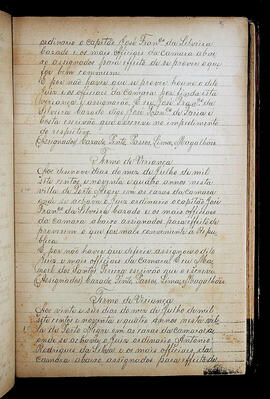 ordinario o capitão José Fran.co da Silveira
Cazado e os mais officiaes da Camara abai-
xo assignados para effeito de se prover o que
for bem commum.
E por não haver que se prover houve o dito
Juiz e os officiaes da Camara por finda esta
vereança e assignarão. E eu José Fran.co da
Silveira Cazado digo José Fran.co de Faria a
Costa escrivão que escrevo no impedimento
do respectivo.
(Assignados) Cazado, Pinto, Passos, Lima, Magalhães
Termo de Vereança
Aos desenove dias do mez de Julho de mil
sete centos e noventa e quatro annos nesta
villa de Porto Alegre em as cazas da camara
onde se achava o Juiz ordinario o capitão José
Fran.co da Silveira Cazado e os mais officiaes
da Camara abaixo assignados para effeito de
proverem o que for mais conveniente á Repu-
blica.
E por não haver que deferir assignou o dito
Juiz e mais officiaes da Camara. Eu Ma-
noel dos Santos escrivão que o escrevi
(Assignados) Cazado, Pinto, Passos, Lima, Magalhães
Termo de Vereança
Aos vinte e seis dias do mez de Julho de mil
sete centos e noventa e quatro annos nesta vil-
la de Porto Alegre em as cazas da camara,
onde se achava o Juiz ordinario Antonio
Rodrigues da Silva e os mais officiaes da
camara abaixo assignados para effeito de